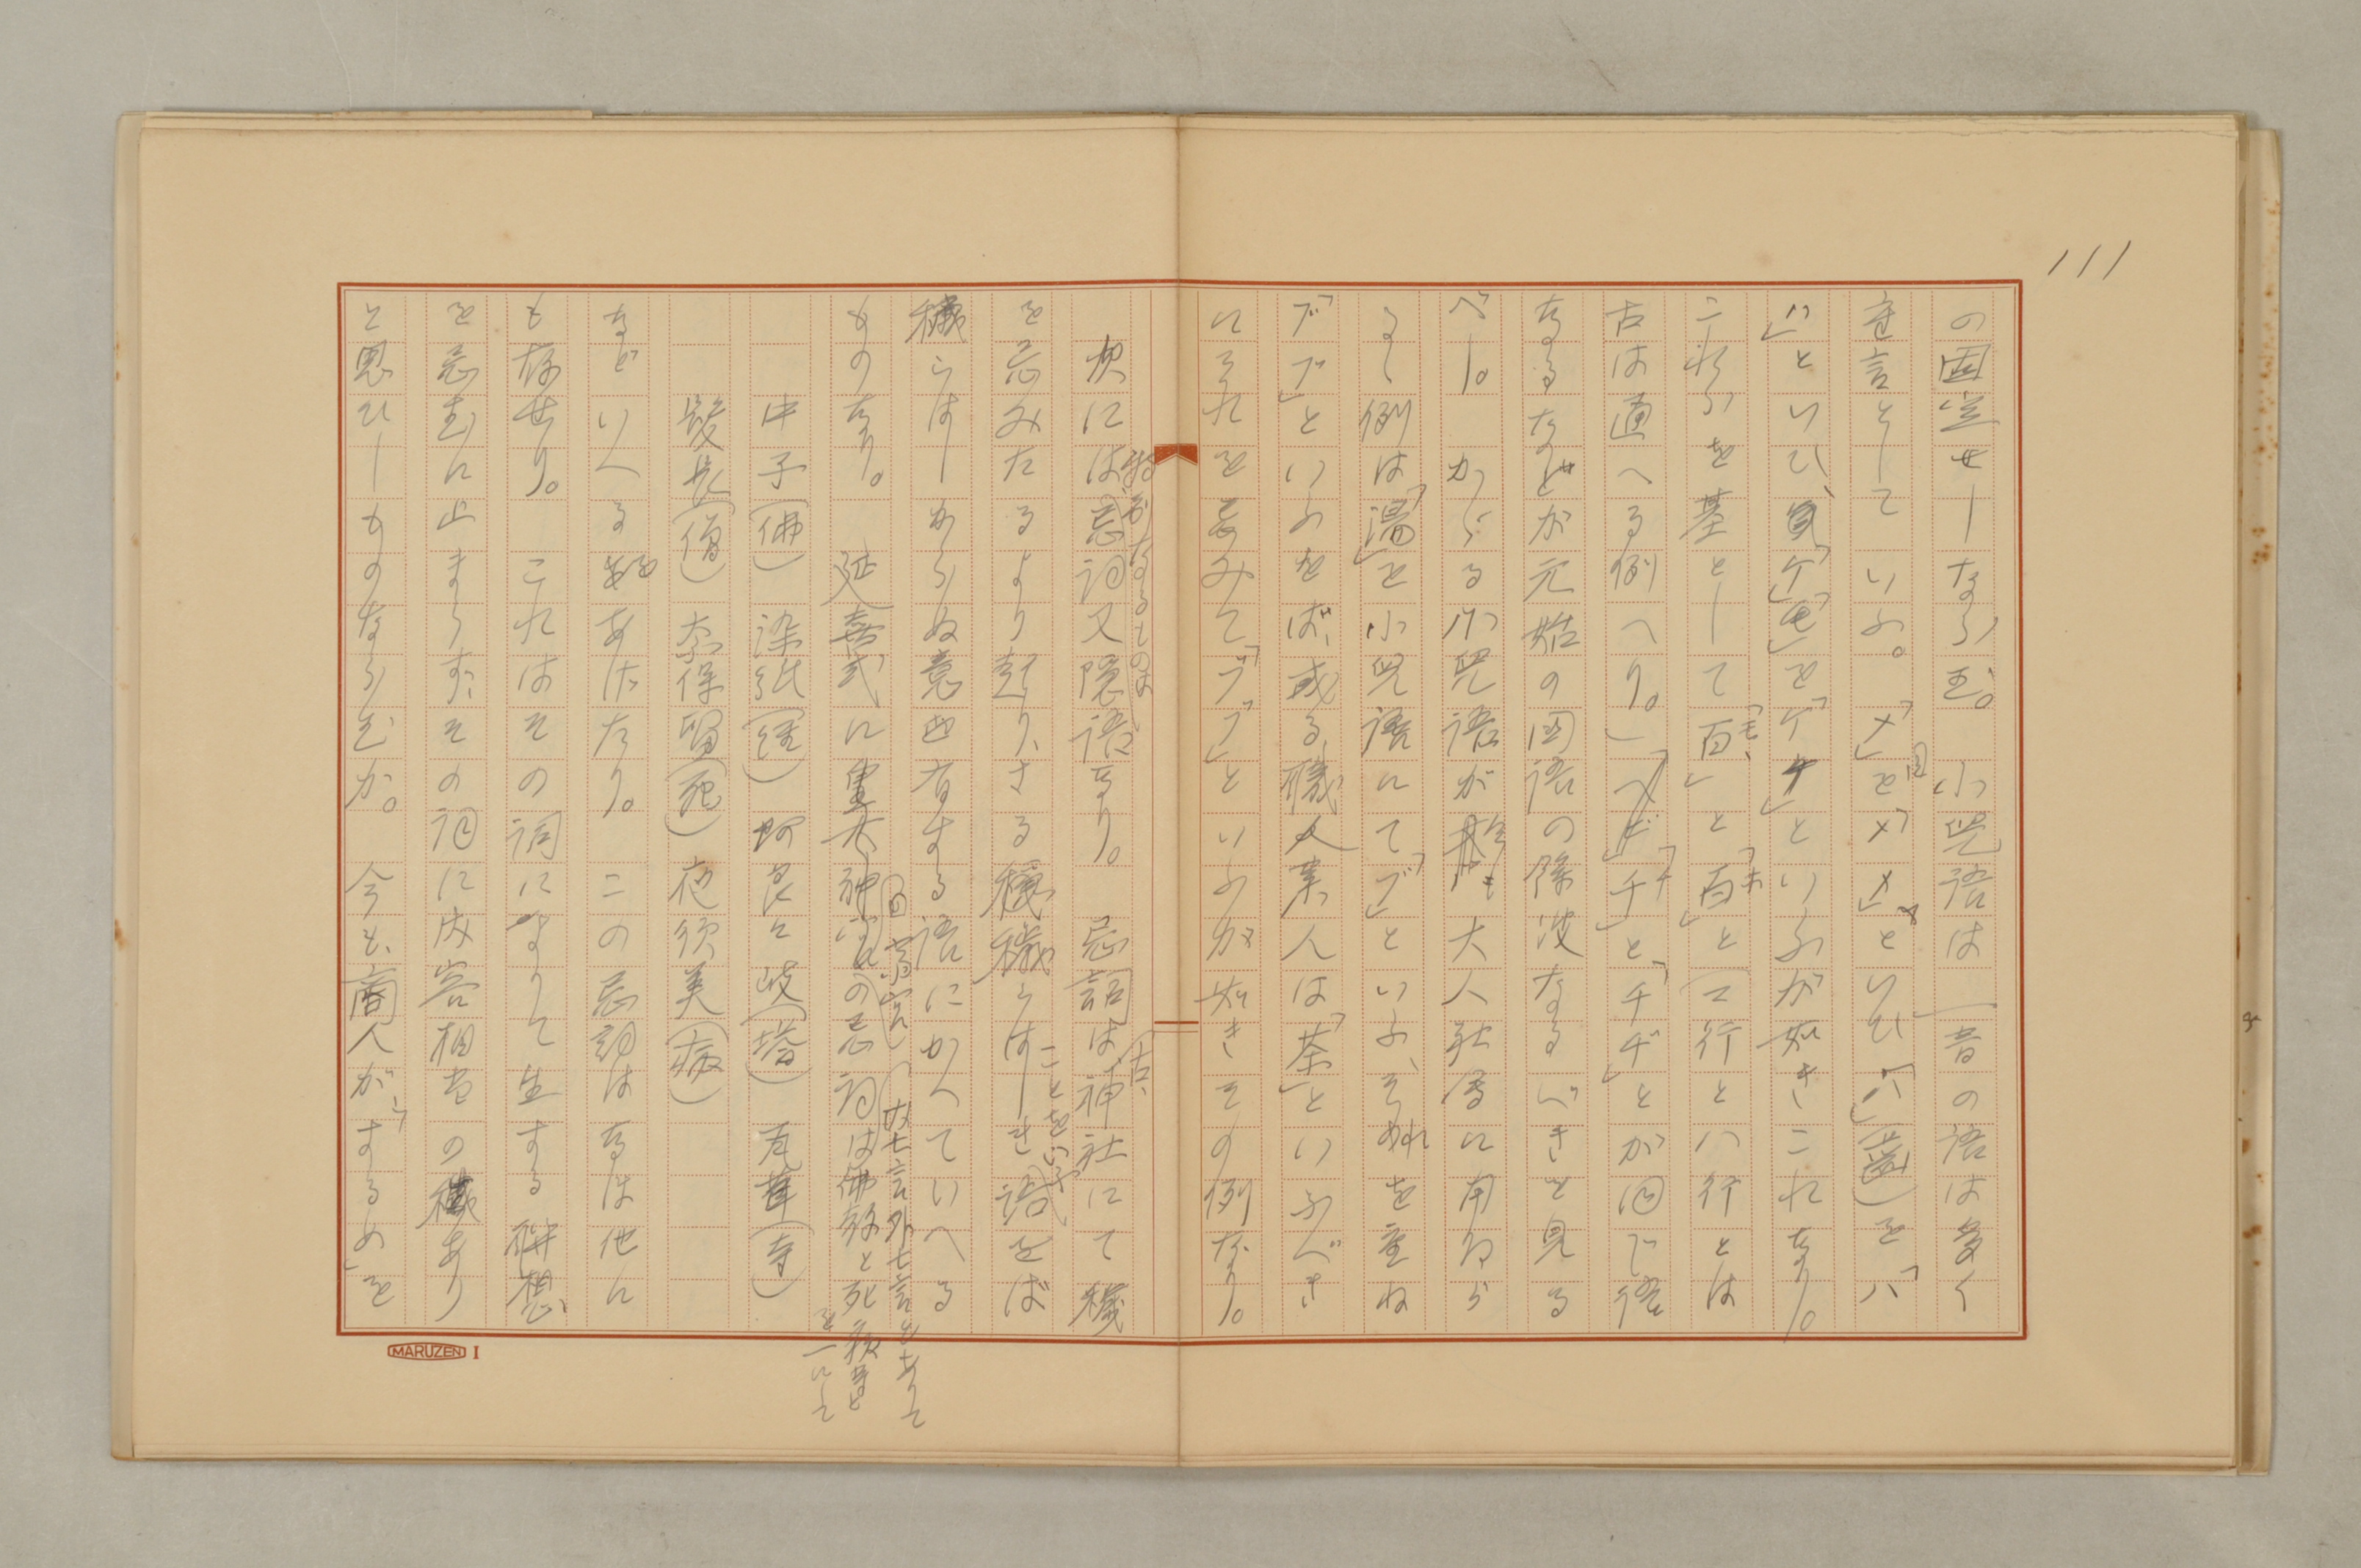 111
の固定せしならむ。小児語は一音の語は多く
重言としていふ。「メ」を「メメ」といひ「ハ」(歯)を「ハ
ハ」といひ、「毛」を「ケケ」といふが如きこれなり。
これらを基として「百」と「百」と(マ行とハ行とは
古は通へる例へり。)「チ」と「チヂ」とが同じ語
なるなどが元始の国語の除波なるべきと見る
べし。かゝる小児語が大人社会に用ゐら
るゝ例は「湯」を小児語にて「ブ」といふ、それを重ね
「ブブ」といふをば、或る職人業人は「茶」といふべき
にそれを忌みて「ブブ」といふが如きその例なり。
次には忌詞又隠語なり。忌詞は、古、神社にて穢
を忌みたるより起り、さる穢穢らはしき語をば
ことをいふ
穢らはしからぬ意を有する語にかへていへる
ものなり。延喜式に皇大神宮の忌詞は佛教と死疾等と
を一にして
斎宮(内七言外七言とありて
中子(佛) 染紙(経) 阿良々岐(塔) 瓦葺(寺)
髪長(僧) 奈保留(死) 夜須美(病)
などいへるあげたり。この忌詞は なほ他に
も存せり。これはその詞によりて生する聯想
を忌むに止まらず、その詞に内容相当の穢あり
と思ひしものならむか。今も、商人が、「するめ」を
MARUZEN I